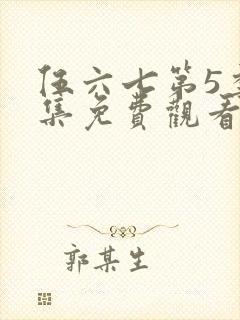 伍六七第5季
集免費觀看
郭某生